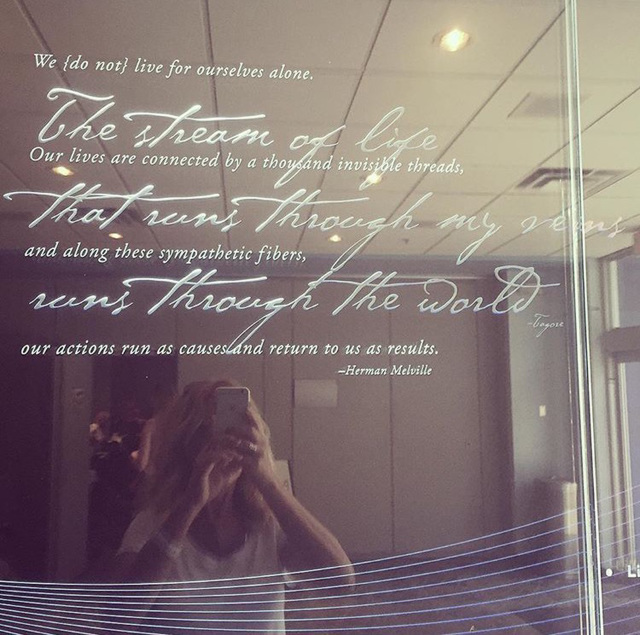 We {do not} live for ourselves alone.
The stream of life
Our lives are connected by a thousand invisible threads,
that runs through my veins
and along these sympathetic fibers,
runs through the world
-Tagore
our actions run as causes and return to us as results.
–Herman Melville
• Li